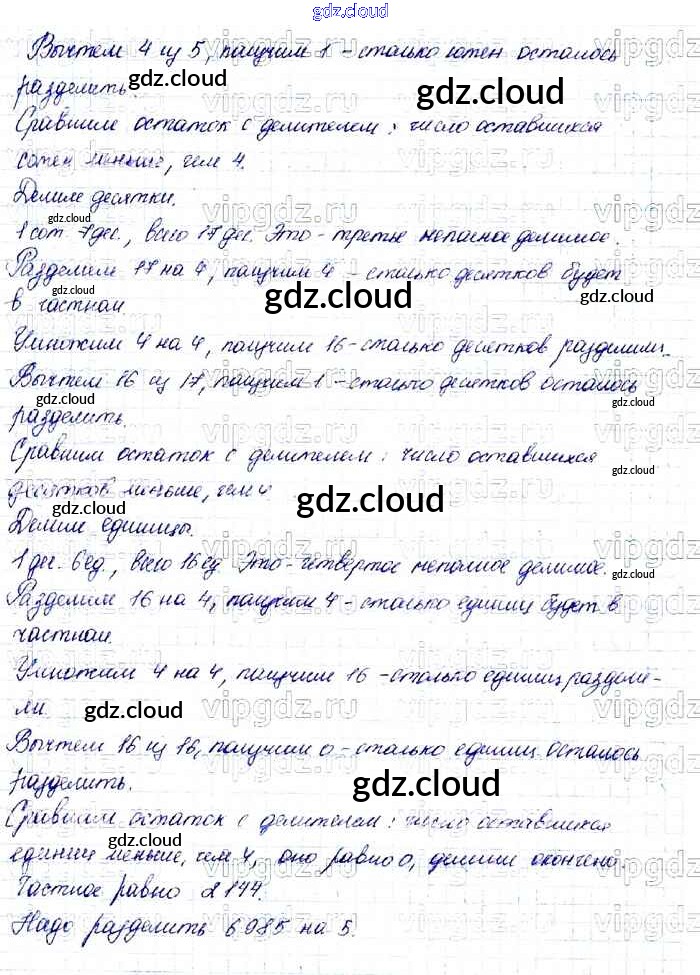 gdz.cloud
Вычтем 4 из 5, получим 1 - столько сотен осталось
разделить.
Сравним остаток с делителем: число оставшихся
сотен меньше, чем 4.
Делим десятки.
1 сот. 7 дес., всего 17 дес. Это - третье неполное делимое.
Разделим 17 на 4, получим 4 - столько десятков будет
в частном.
Умножим 4 на 4, получим 16 - столько десятков разделили.
Вычтем 16 из 17, получим 1 - столько десятков осталось
разделить.
Сравним остаток с делителем: число оставшихся
десятков меньше, чем 4
Делим единицы.
1 дес. 6 ед., всего 16 ед. Это - четвертое неполное делимое.
Разделим 16 на 4, получим 4 - столько единиц будет в
частном.
Умножим 4 на 4, получим 16 - столько единиц раздели-
ли.
Вычтем 16 из 16, получим 0 - столько единиц осталось
разделить.
Сравним остаток с делителем: число оставшихся
единиц меньше, чем 4, оно равно 0, деление окончено.
Частное равно 2144.
Надо разделить 6985 на 5.